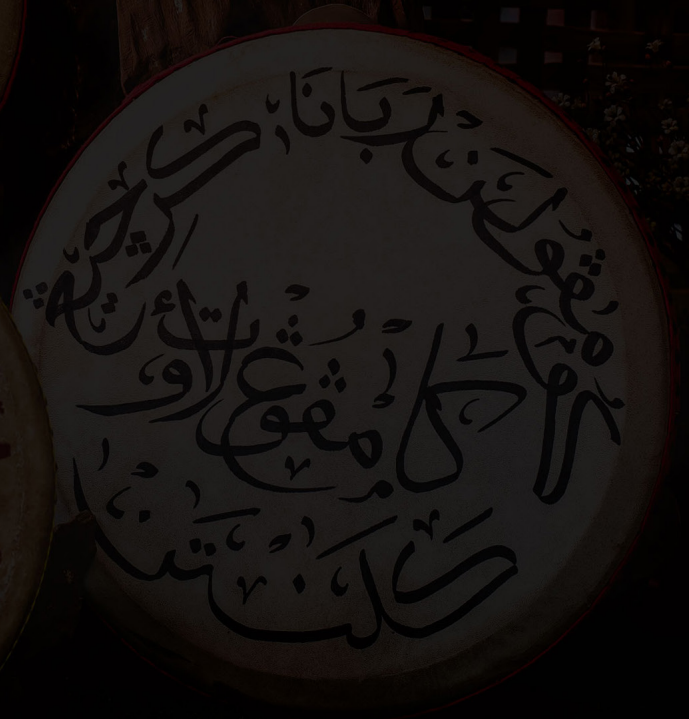 كومڤولن ربانا كرچيڠ
كامڤوڠ لاءوت
كلنتن